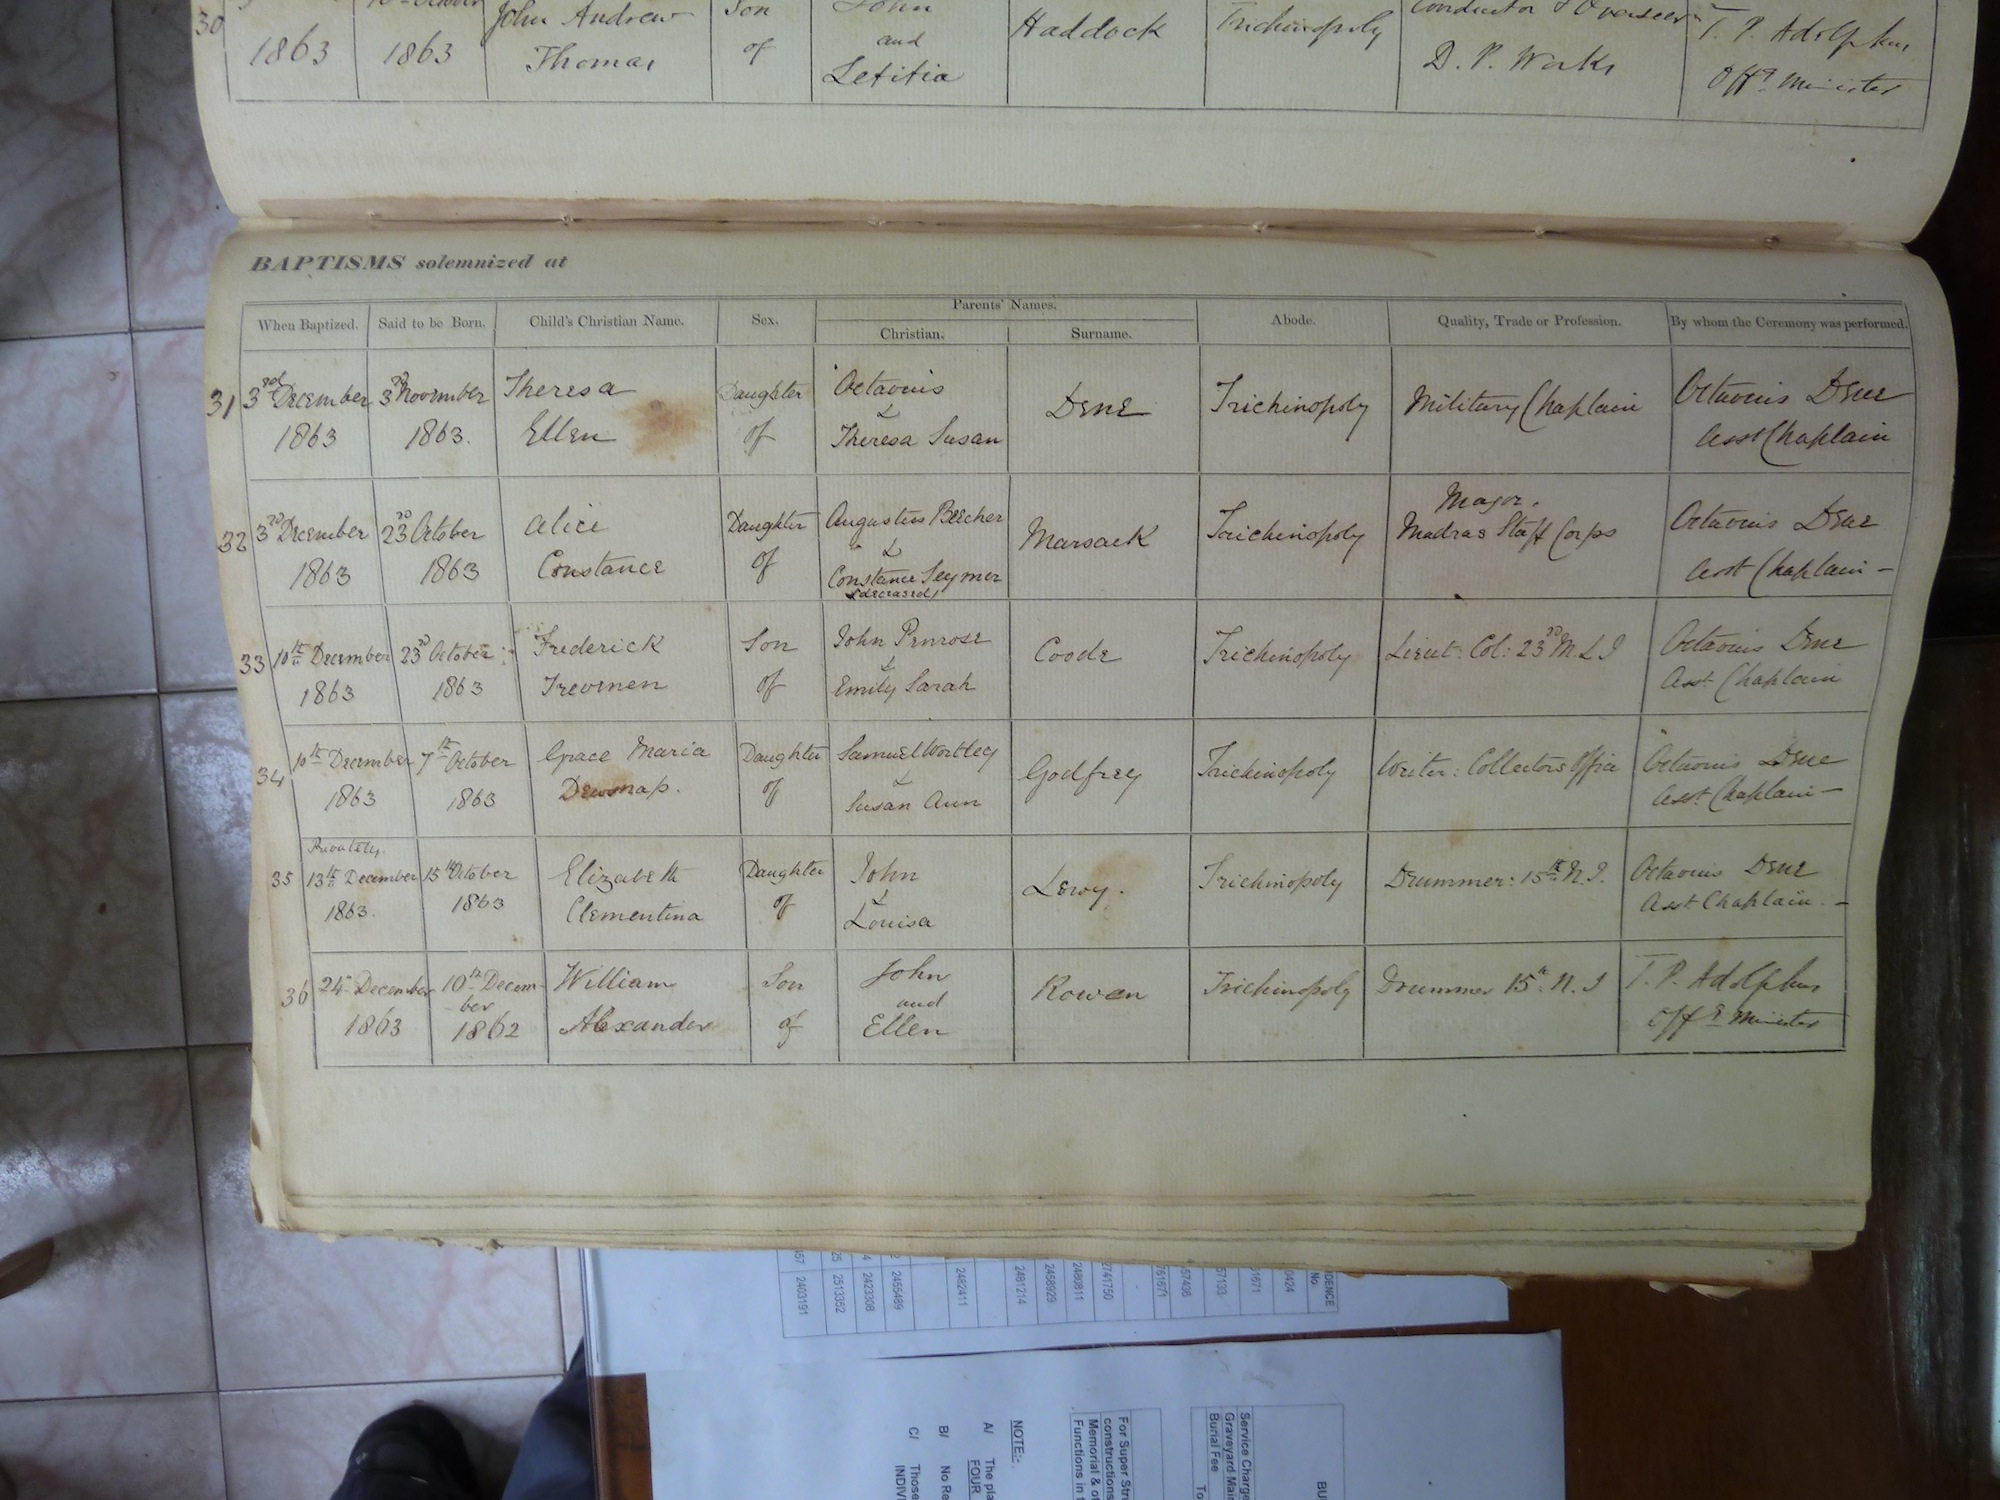 30 1863 1863 John Andrew Thomas Son of John and Letitia Haddock Trichinopoly Conductor & Overseer D. P. Works T. P. Adolphus Offg Minister
BAPTISMS solemnized at
When Baptized. Said to be Born. Child's Christian Name. Sex. Parents' Names. Christian. Surname. Abode. Quality, Trade or Profession. By whom the Ceremony was performed.
31 3rd December 1863 3rd November 1863. Theresa Ellen Daughter of Octavius & Theresa Susan Dene Trichinopoly Military Chaplain Octavius Dene Asst Chaplain
32 3rd December 1863 23rd October 1863 Alice Constance Daughter of Augustus Beecher & Constance Seymer (deceased) Marsack Trichinopoly Major. Madras Staff Corps Octavius Dene Asst Chaplain -
33 10th December 1863 23rd October 1863 Frederick Trevenen Son of John Penrose & Emily Sarah Coode Trichinopoly Lieut: Col: 23rd M. L I Octavius Dene Asst Chaplain
34 10th December 1863 7th October 1863 Grace Maria Dewsnap. Daughter of Samuel Wortley & Susan Ann Godfrey Trichinopoly Writer: Collectors Office Octavius Dene Asst Chaplain -
35 Privately. 13th December 1863. 15th October 1863 Elizabeth Clementina Daughter of John & Louisa Trichinopoly Drummer: 15th N. I. Octavius Dene Asst Chaplain. -
36 24th December 1863 10th Decem-ber 1862 William Alexander Son of John and Ellen Rowen Trichinopoly Drummer 15th N. I T. P. Adolphus Offg Minister
457 2403191
25 2513352
4 2423308
2 2455489
2482411
2481214
2458929
2480811
2741750
761671
57438
57133
61671
0424
DENCE No.
NOTE:-
A/ The pla
FOUR
B/ No Re
C/ Those
INDIV
For Super Str
constructions
Memorial & ot
Functions in t
Service Charge
Graveyard Mai
Burial Fee
To
BU